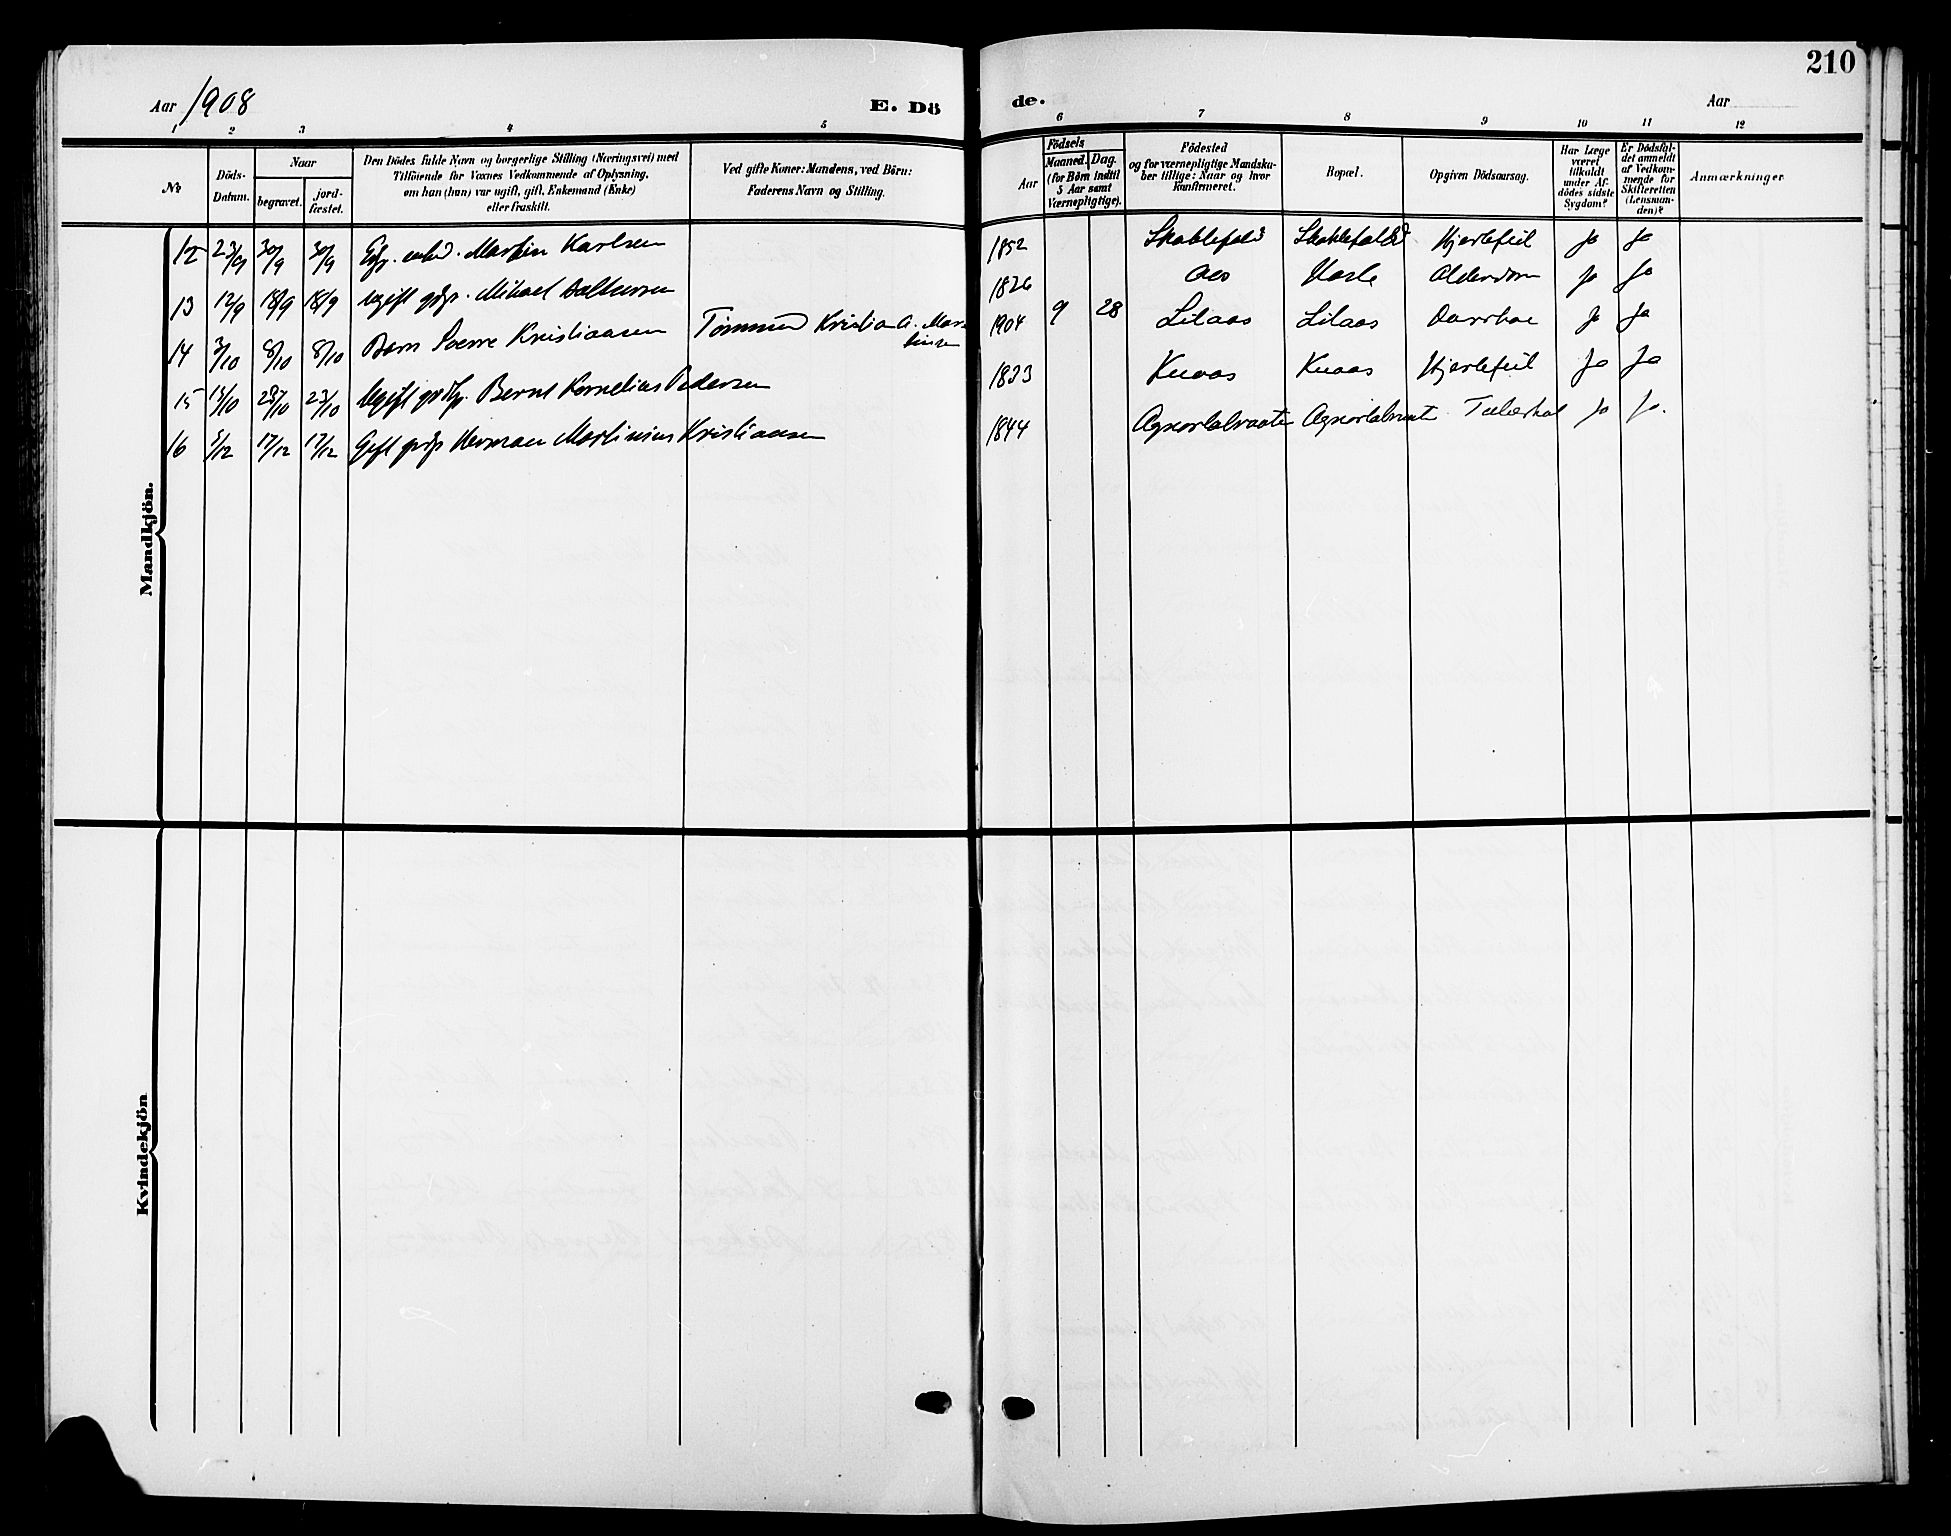 210
Aar 1908
E. Dö
de.
Aar
1 2 3 4 5
6 7 8 9 10 11 12
No
Döds-
Datum.
Naar
begravet.
jord-
fæstet.
Den Dödes fulde Navn og borgerlige Stilling (Næringsvei) med
Tilföiende for Voxnes Vedkommende af Oplysning,
om han (hun) var ugift, gift, Enkemand (Enke)
eller fraskilt.
Ved gifte Koner: Mandens, ved Börn:
Faderens Navn og Stilling.
Födsels
Aar
Maaned.
Dag.
(for Börn indtil
5 Aar samt
Værnepligtige).
Födested
og for værnepligtige Mandska-
ber tillige: Naar og hvor
Konfirmeret.
Bopæl.
Opgiven Dödsaarsag.
Har Læge
været
tilkaldt
under Af-
dödes sidste
Sygdom?
Er Dödsfal-
det anmeldt
af Vedkom-
mende for
Skifteretten
(Lensman-
den)?
Anmærkninger.
Mandkjön.
12 23/9 30/9 30/9 Martin Karlsen 1852 Hjertefeil Ja Ja
13 12/9 18/9 18/9 Ugift gdsp. Mikael 1826 Aas Hasle Alderdom Ja Ja
14 3/10 8/10 8/10 Barn Sverre Kristiansen Tømmerm Kristian A. Mar-
tinsen 1904 9 28 Lilaas Lilaas Ja Ja
15 23/10 Bernt Kornelius Pedersen 1833 Knaas Knaas Hjertefeil Ja Ja
16 5/12 17/12 17/12 Gift Herman Martinius Kristiansen 1844 Ja Ja.
Kvindekjön